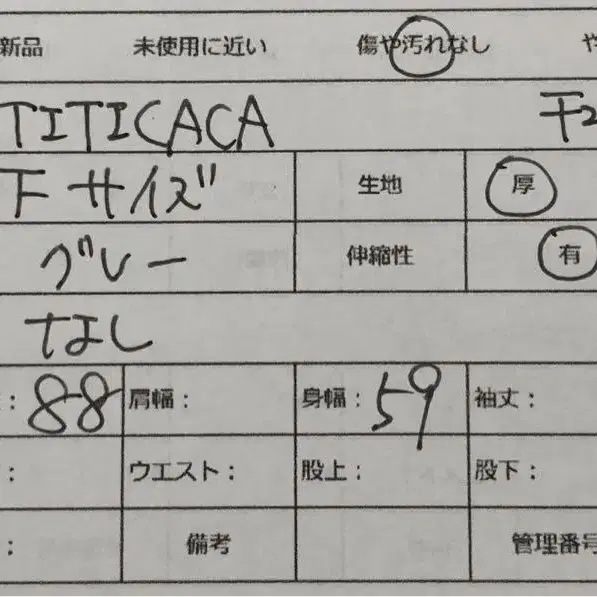 新品 未使用に近い 傷や汚れなし や
TITICACA
下 サイズ 生地 厚
グレー 伸縮性 有
なし
: 88 肩幅: 身幅: 59 袖丈:
: ウエスト: 股上: 股下:
: 備考 管理番号